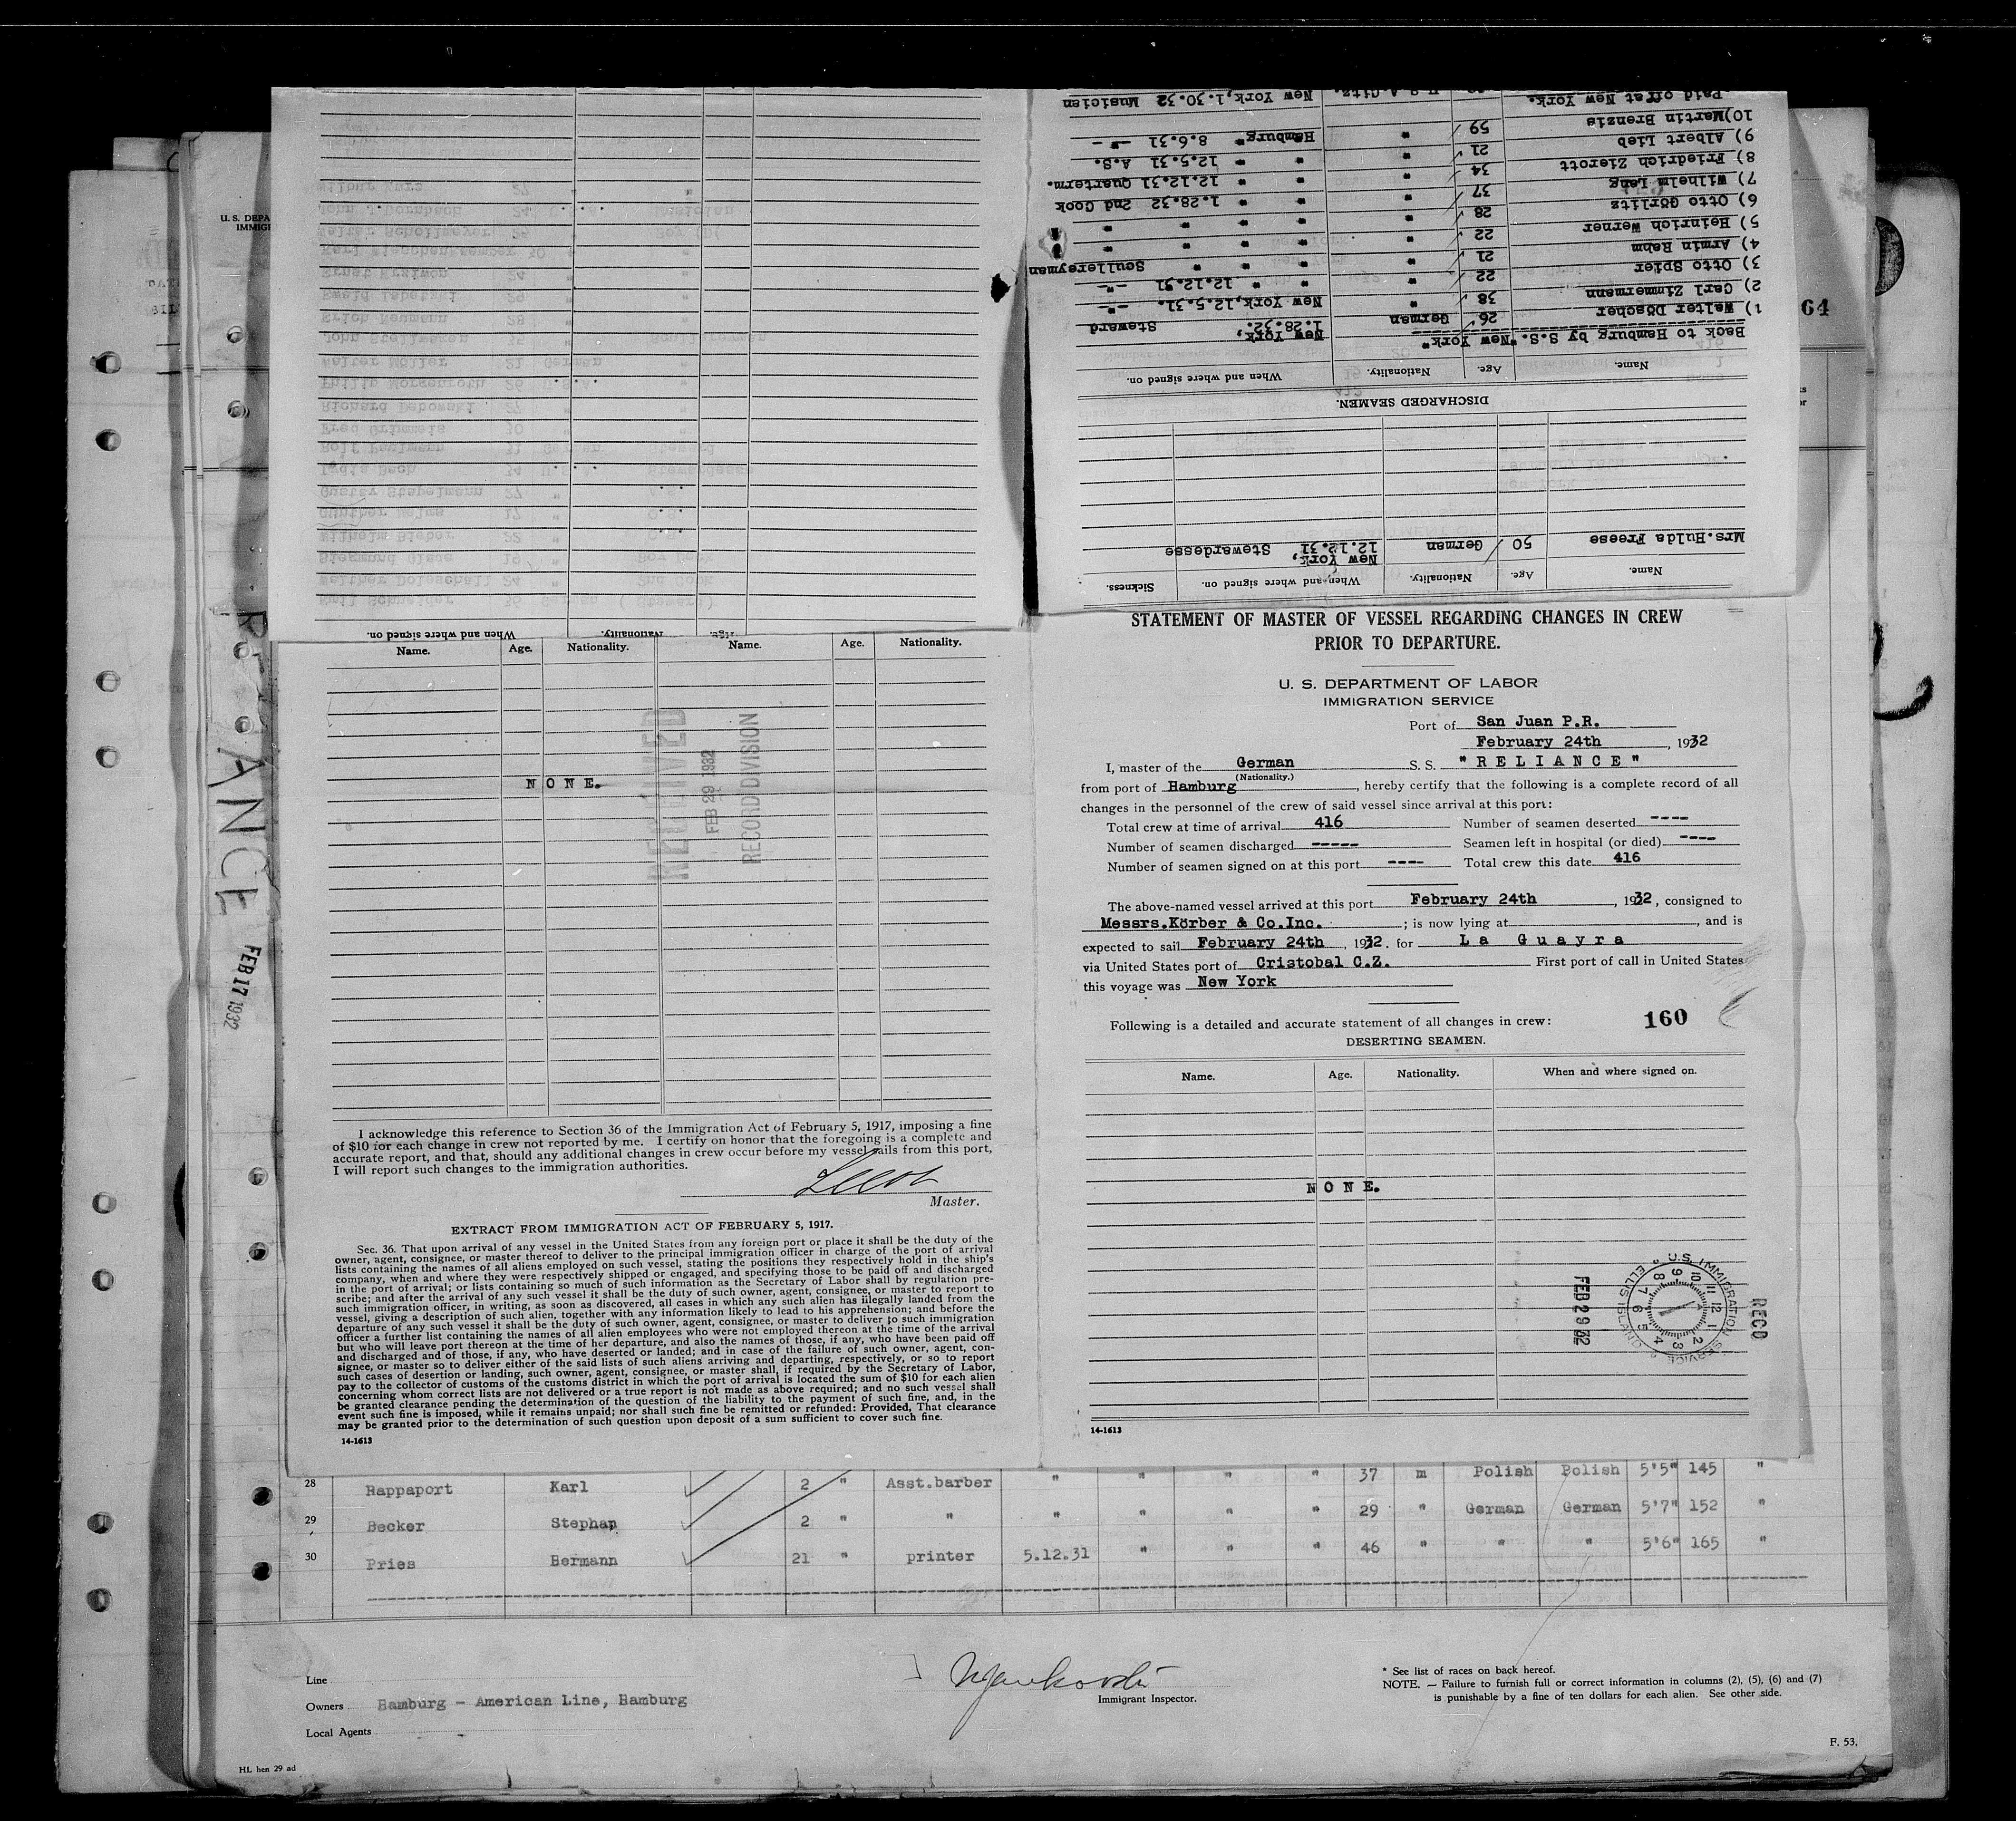 U. S. DEPA
IMMIG
64
Paid off at New York.
New York, 1.30.32 Musician
10) Martin Brenzis 59 " Hamburg 8.6.31 -"-
9) Albert Lieb 21 " " 12.5.31 A.S.
8) Friedrich Zierott 34 " " 12.12.31 Quarterm.
7) Wilhelm Lang 37 " " 1.28.32 2nd Cook
6) Otto Görlitz 28 " " " "
5) Heinrich Werner 22 " " " "
4) Armin Rehm 21 " " " Scullereyman
3) Otto Spier 22 " " 12.12.31 -"-
2) Carl Zimmermann 38 " New York, 12.5.31. -"-
1) Walter Döscher 26 German New York, 1.28.32. Steward
Back to Hamburg by S.S. "New York"
Name. Age. Nationality. When and where signed on.
DISCHARGED SEAMEN.
Mrs. Hulda Freese 50 German New York, 12.12.31 Stewardesse
Name. Age. Nationality. When and where signed on. Sickness.
When and where signed on. Nationality. Age.
Name. Age. Nationality. Name. Age. Nationality.
NONE.
RECEIVED
FEB 29 1932
RECORD DIVISION
I acknowledge this reference to Section 36 of the Immigration Act of February 5, 1917, imposing a fine
of $10 for each change in crew not reported by me. I certify on honor that the foregoing is a complete and
accurate report, and that, should any additional changes in crew occur before my vessel sails from this port,
I will report such changes to the immigration authorities.
Master.
EXTRACT FROM IMMIGRATION ACT OF FEBRUARY 5, 1917.
Sec. 36. That upon arrival of any vessel in the United States from any foreign port or place it shall be the duty of the
owner, agent, consignee, or master thereof to deliver to the principal immigration officer in charge of the port of arrival
lists containing the names of all aliens employed on such vessel, stating the positions they respectively hold in the ship's
company, when and where they were respectively shipped or engaged, and specifying those to be paid off and discharged
in the port of arrival; or lists containing so much of such information as the Secretary of Labor shall by regulation pre-
scribe; and after the arrival of any such vessel it shall be the duty of such owner, agent, consignee, or master to report to
such immigration officer, in writing, as soon as discovered, all cases in which any such alien has illegally landed from the
vessel, giving a description of such alien, together with any information likely to lead to his apprehension; and before the
departure of any such vessel it shall be the duty of such owner, agent, consignee, or master to deliver to such immigration
officer a further list containing the names of all alien employees who were not employed thereon at the time of the arrival
but who will leave port thereon at the time of her departure, and also the names of those, if any, who have been paid off
and discharged and of those, if any, who have deserted or landed; and in case of the failure of such owner, agent, con-
signee, or master so to deliver either of the said lists of such aliens arriving and departing, respectively, or so to report
such cases of desertion or landing, such owner, agent, consignee, or master shall, if required by the Secretary of Labor,
pay to the collector of customs of the customs district in which the port of arrival is located the sum of $10 for each alien
concerning whom correct lists are not delivered or a true report is not made as above required; and no such vessel shall
be granted clearance pending the determination of the question of the liability to the payment of such fine, and, in the
event such fine is imposed, while it remains unpaid; nor shall such fine be remitted or refunded: Provided, That clearance
may be granted prior to the determination of such question upon deposit of a sum sufficient to cover such fine.
14-1613
STATEMENT OF MASTER OF VESSEL REGARDING CHANGES IN CREW
PRIOR TO DEPARTURE.
U. S. DEPARTMENT OF LABOR
IMMIGRATION SERVICE
Port of San Juan P.R.
February 24th, 1932
I, master of the German S. S. "RELIANCE"
(Nationality.)
from port of Hamburg, hereby certify that the following is a complete record of all
changes in the personnel of the crew of said vessel since arrival at this port:
Total crew at time of arrival 416 Number of seamen deserted ----
Number of seamen discharged ----- Seamen left in hospital (or died) ----
Number of seamen signed on at this port ---- Total crew this date 416
The above-named vessel arrived at this port February 24th, 1932, consigned to
Messrs. Körber & Co. Inc.; is now lying at , and is
expected to sail February 24th, 1932. for La Guayra
via United States port of Cristobal C.Z. First port of call in United States
this voyage was New York
Following is a detailed and accurate statement of all changes in crew: 160
DESERTING SEAMEN.
Name. Age. Nationality. When and where signed on.
NONE.
U.S. IMMIGRATION SERVICE ELLIS ISLAND
12 1 2 3 4 5 6 7 8 9 10 11
RECD
FEB 29 32
14-1613
ANCE
FEB 17 1932
28 Rappaport Karl 2 " Asst.barber " " " " 37 m Polish Polish 5'5" 145 "
29 Becker Stephan 2 " " " " " " 29 " German German 5'7" 152 "
30 Pries Hermann 21 " printer 5.12.31 " " " 46 " " " 5'6" 165 "
Line
Owners Hamburg - American Line, Hamburg
Local Agents
Immigrant Inspector.
* See list of races on back hereof.
NOTE. — Failure to furnish full or correct information in columns (2), (5), (6) and (7)
is punishable by a fine of ten dollars for each alien. See other side.
F. 53.
HL hen 29 ad